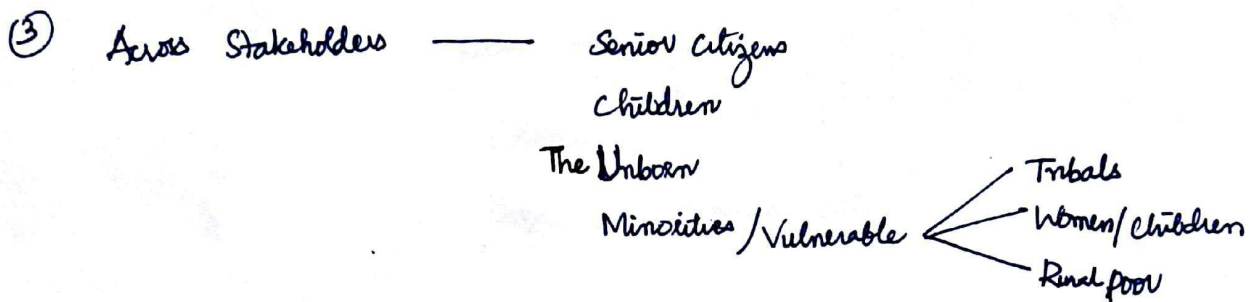 ③ Across Stakeholders — Senior citizens
Children
The Unborn
Minorities/Vulnerable
Tribals
Women/Children
Rural poor